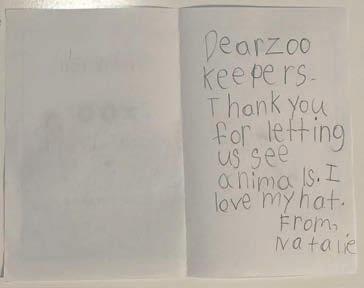 Dear zoo
keepers.
Thank you
for letting
us see
animals. I
love my hat.
From,
Natalie